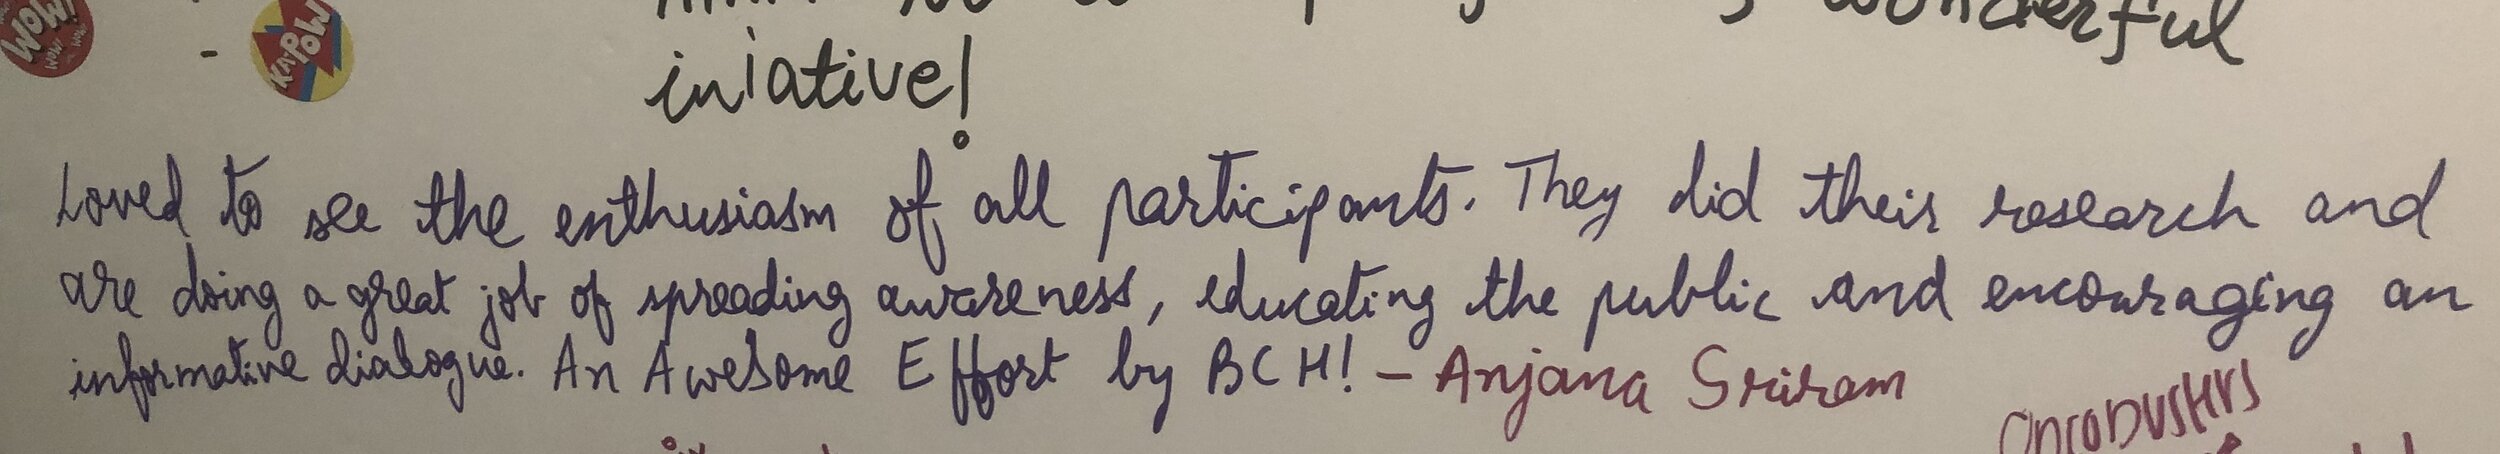 WOW!
KA-POW
wonderful
iniative!
Loved to see the enthusiasm of all participants. They did their research and
are doing a great job of spreading awareness, educating the public and encouraging an
informative dialogue. An Awesome Effort by BCH! - Anjana Sriram